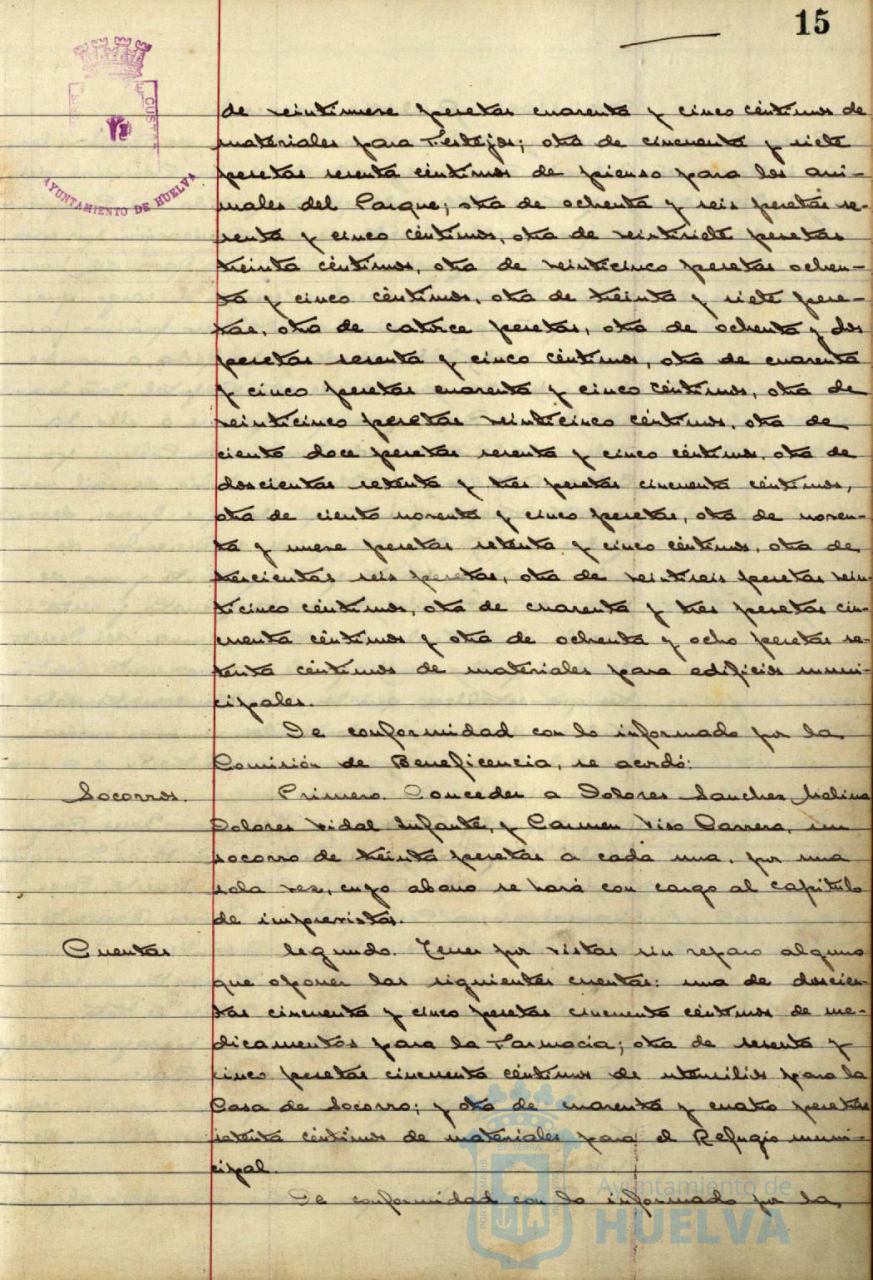 15
CUST
AYUNTAMIENTO DE HUELVA
de veintinueve pesetas cuarenta y cinco céntimos de
materiales para Festejos; otra de cincuenta y siete
pesetas sesenta céntimos de pienso para los ani-
males del Parque; otra de ochenta y seis pesetas se-
senta y cinco céntimos, otra de veintisiete pesetas
treinta céntimos, otra de veinticinco pesetas ochen-
ta y cinco céntimos, otra de treinta y siete pese-
tas, otra de catorce pesetas, otra de ochenta y dos
pesetas sesenta y cinco céntimos, otra de cuarenta
y cinco pesetas cuarenta y cinco céntimos, otra de
veinticinco pesetas veinticinco céntimos, otra de
ciento doce pesetas sesenta y cinco céntimos, otra de
doscientas setenta y tres pesetas cincuenta céntimos,
otra de ciento noventa y cinco pesetas, otra de noven-
ta y nueve pesetas setenta y cinco céntimos, otra de
trescientas seis pesetas, otra de veintiseis pesetas vein-
ticinco céntimos, otra de cuarenta y tres pesetas cin-
cuenta céntimos y otra de ochenta y ocho pesetas se-
tenta céntimos de materiales para edificios muni-
cipales.
De conformidad con lo informado por la
Comisión de Beneficencia, se acordó:
Socorros. Primero. Conceder a Dolores Sanchez Molina
Dolores Vidal Infante, y Carmen Viso Carrera, un
socorro de treinta pesetas a cada una, por una
sola vez, cuyo abono se hará con cargo al capitulo
de imprevistos.
Cuentas Segundo. Tener por vistas sin reparo alguno
que oponer las siguientes cuentas: una de doscien-
tas cincuenta y cinco pesetas cincuenta céntimos de me-
dicamentos para la Farmacia; otra de sesenta y
cinco pesetas cincuenta céntimos de utensilios para la
Casa de Socorro; y otra de cuarenta y cuatro pesetas
setenta céntimos de materiales para el Refugio muni-
cipal.
De conformidad con lo informado por la
Ayuntamiento de
HUELVA